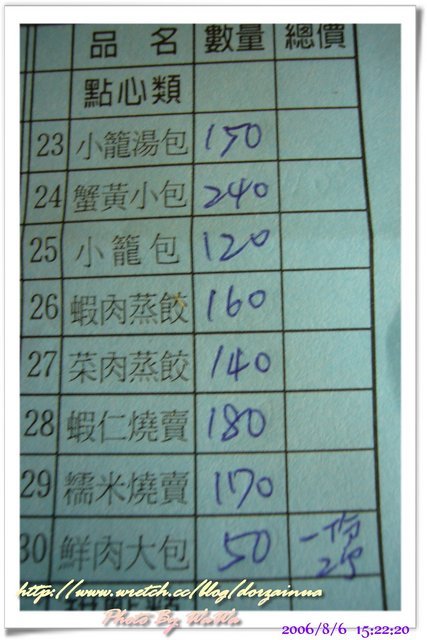 品名 數量 總價
點心類
23 小籠湯包 150
24 蟹黃小包 240
25 小籠包 120
26 蝦肉蒸餃 160
27 菜肉蒸餃 140
28 蝦仁燒賣 180
29 糯米燒賣 170
30 鮮肉大包 50 一份
2个
http://www.wretch.cc/blog/dorzainua
Photo By WaWa
2006/8/6 15:22:20